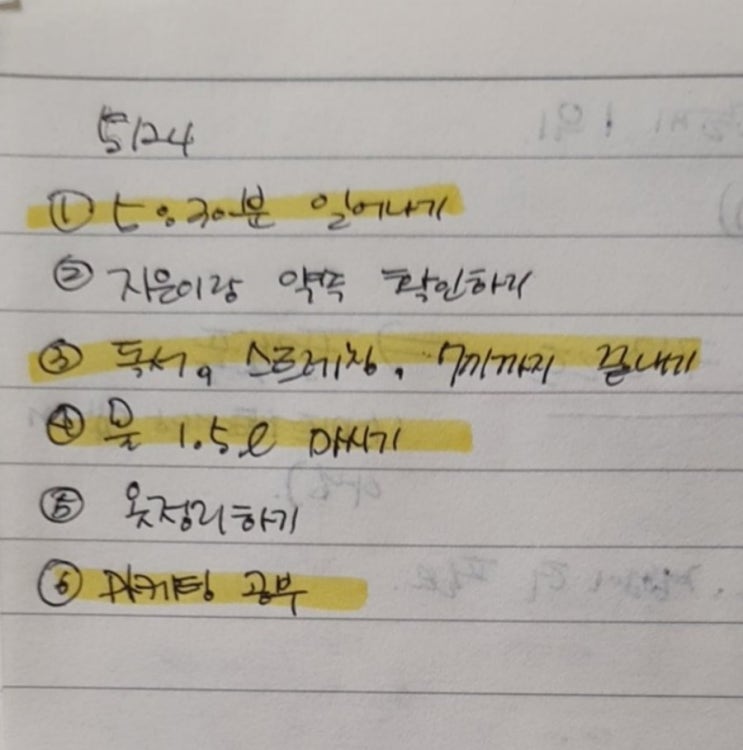 5/24
① 5:30분 일어나기
② 지은이랑 약속 확인하기
③ 독서, 스트레칭, 7시까지 끝내기
④ 물 1.5ℓ 마시기
⑤ 옷정리하기
⑥ 마케팅 공부